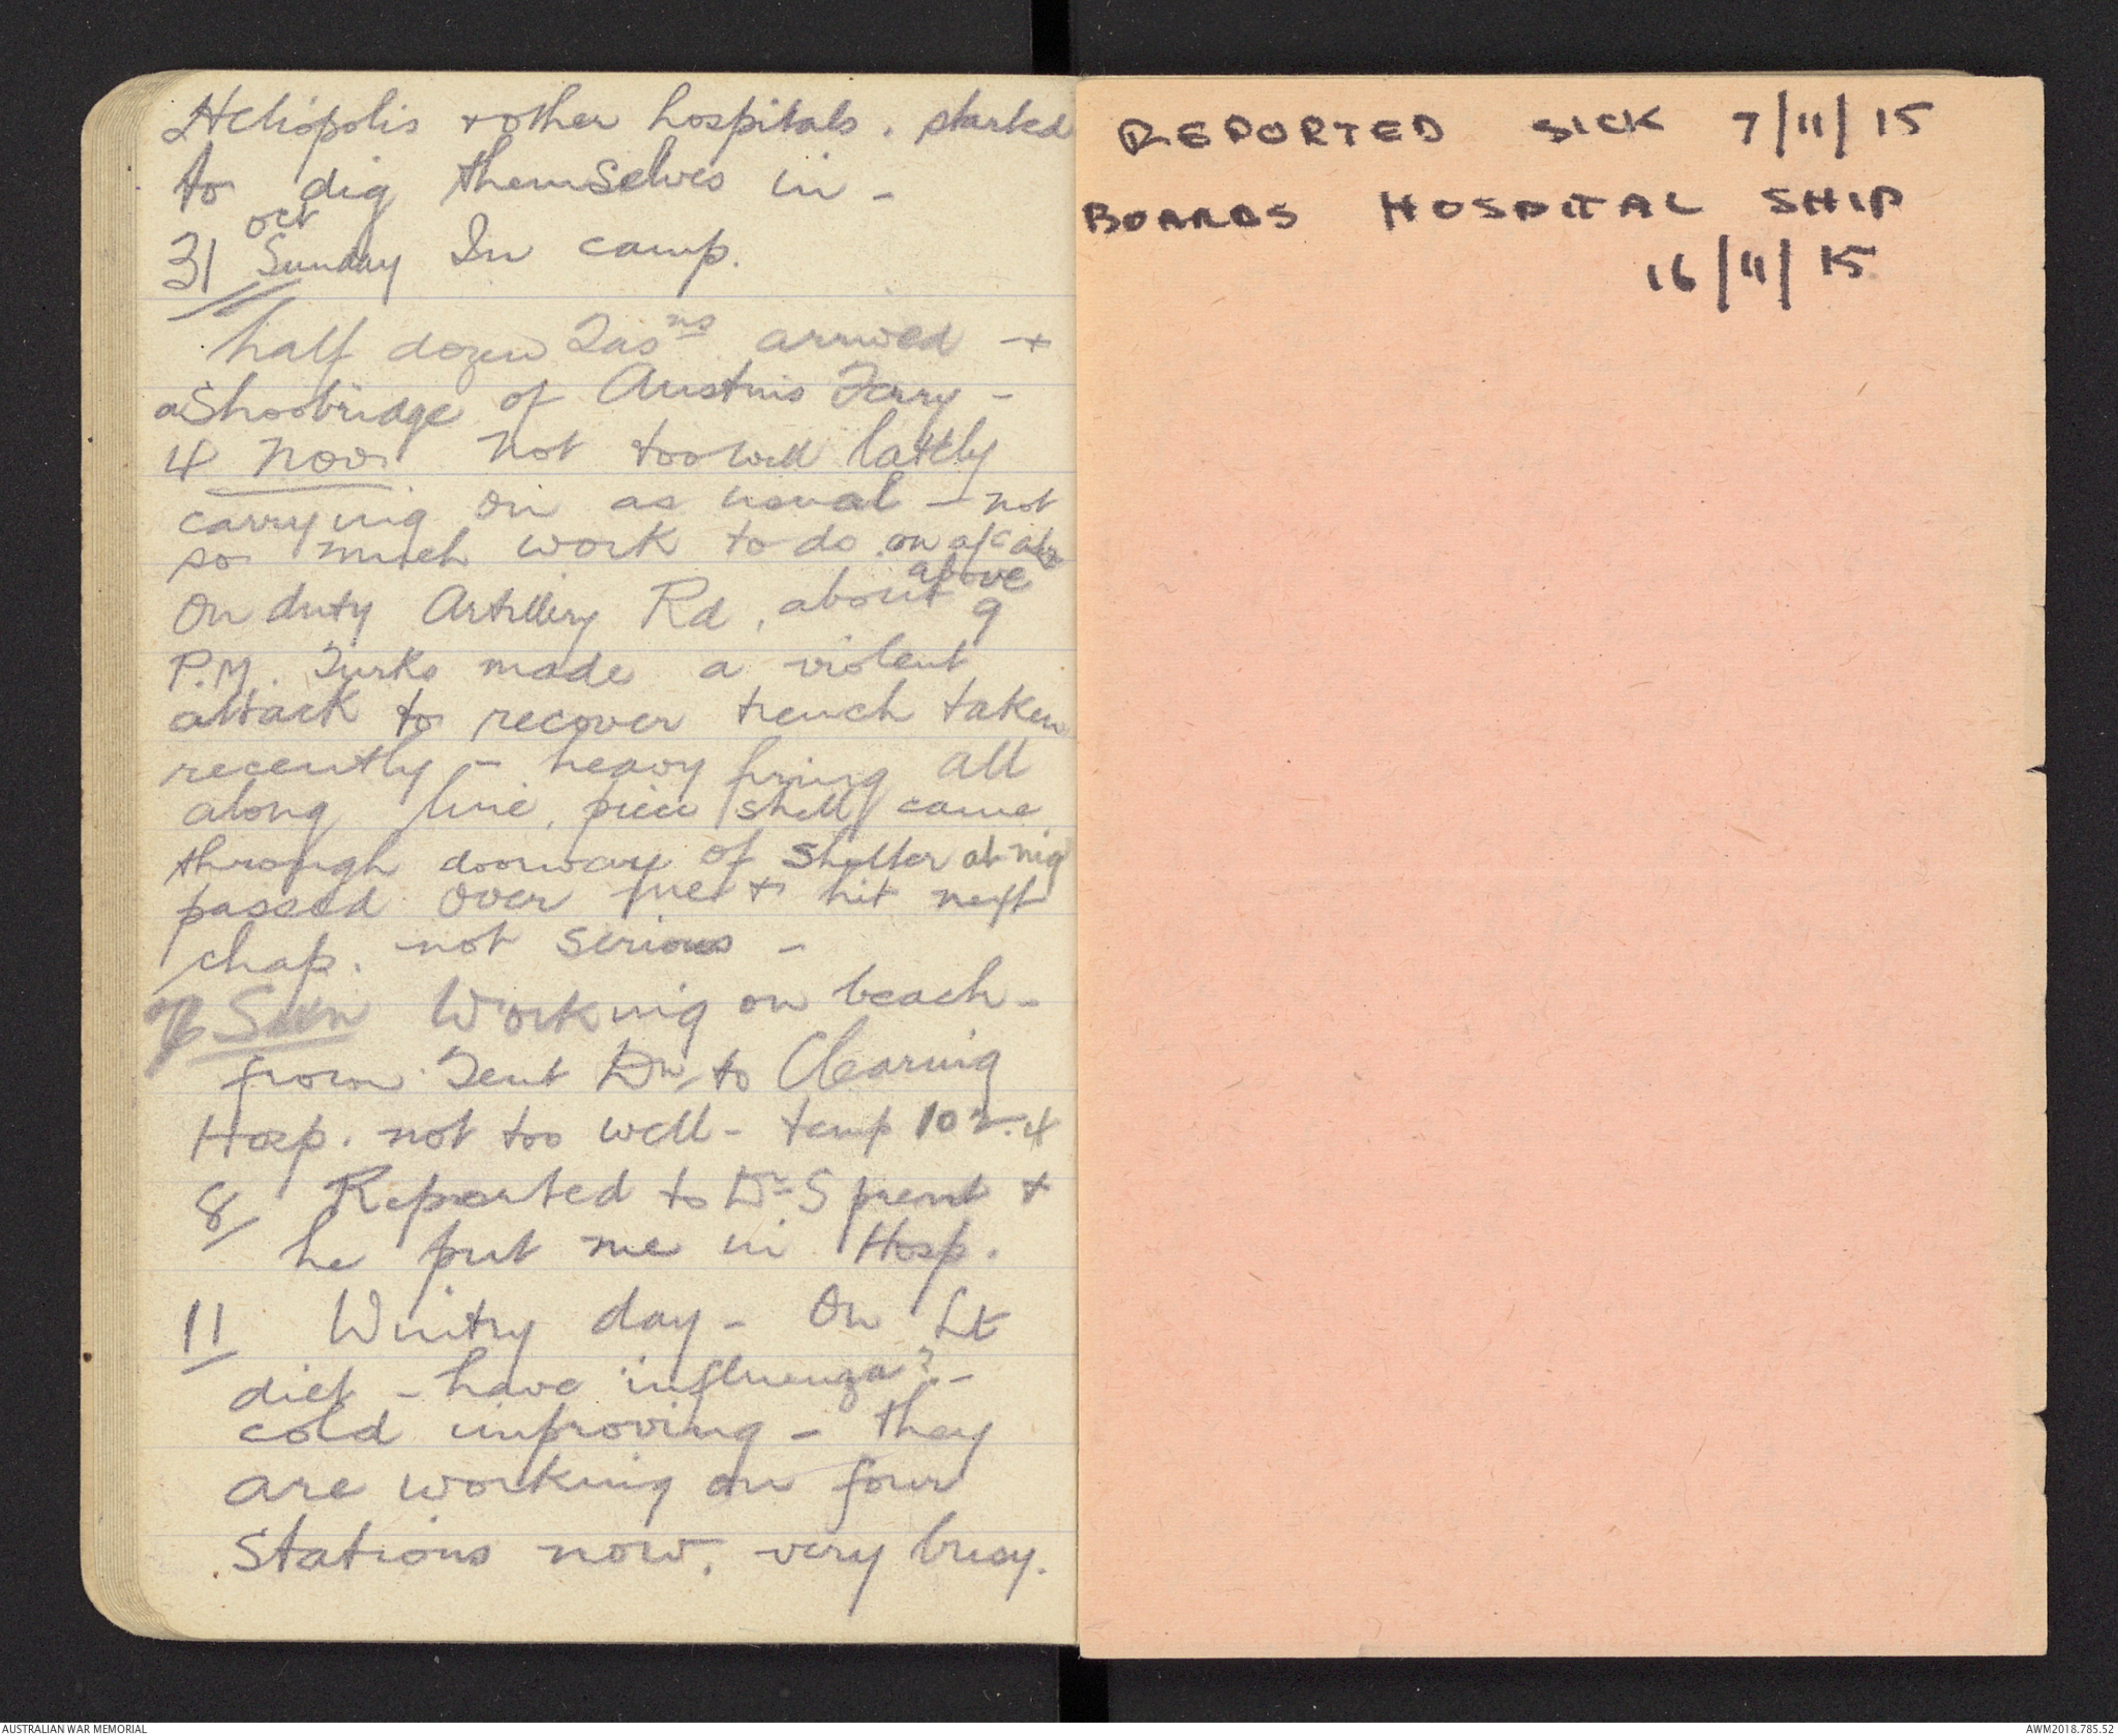 Heliopolis + other hospitals. started
to dig themselves in -
oct
31 Sunday In camp.
half dozen Tasns arrived +
a Shoobridge of Austins Ferry -
4 Nov. not too well lately
carrying on as usual - not
so much work to do. on a/c
above
On duty Artillery Rd, about 9
P.M. Turks made a violent
attack to recover trench taken
recently - heavy firing all
along line, piece shell came
through doorway of shelter at nig
passed over me + hit next
chap. not serious -
7 Sun Working on beach -
from Tent Dn to Clearing
Hosp. not too well - temp 102.4
8 Reported to Dr Sprent +
he put me in Hosp.
11 Wintry day - On Lt
diet - have influenza? -
cold improving - they
are working on four
stations now. very busy.
REPORTED SICK 7/11/15
BOARDS HOSPITAL SHIP
16/11/15
AUSTRALIAN WAR MEMORIAL
AWM2018.785.52